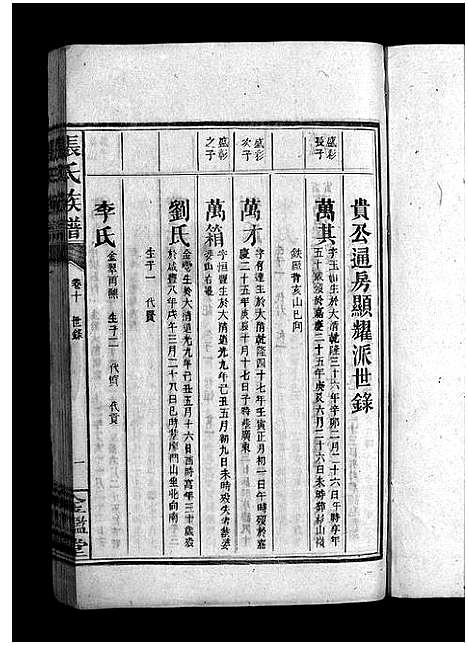 貴公通房顯耀派世錄
盛彩
長子
萬其
字玉山生於大清乾隆三十六年辛卯二月二十六日午時年
五十歲歿於嘉慶二十五年庚辰六月二十六日未時葬杉山嶺
鉄廠背亥山巳向
盛彩
次子
萬才
字有達生於大清乾隆四十七年壬寅正月初一日午時歿於嘉
慶二十五年庚辰十月十七日子時葬廣東
盛彩
之子
萬箱
字恒豐生於大清道光九年己丑五月初九日未時歿失考葬婆
婆山右邊
劉氏
金 生於大清道光九年己丑五月十六日酉時高年三十歲歿
於咸豐八年戊午三月二十八日巳時葬摩門山坐北向南
生子一 代貴
李氏
金翠再醮 生子二 代 代貴
張氏族譜
卷十 世錄
一
金鑑堂